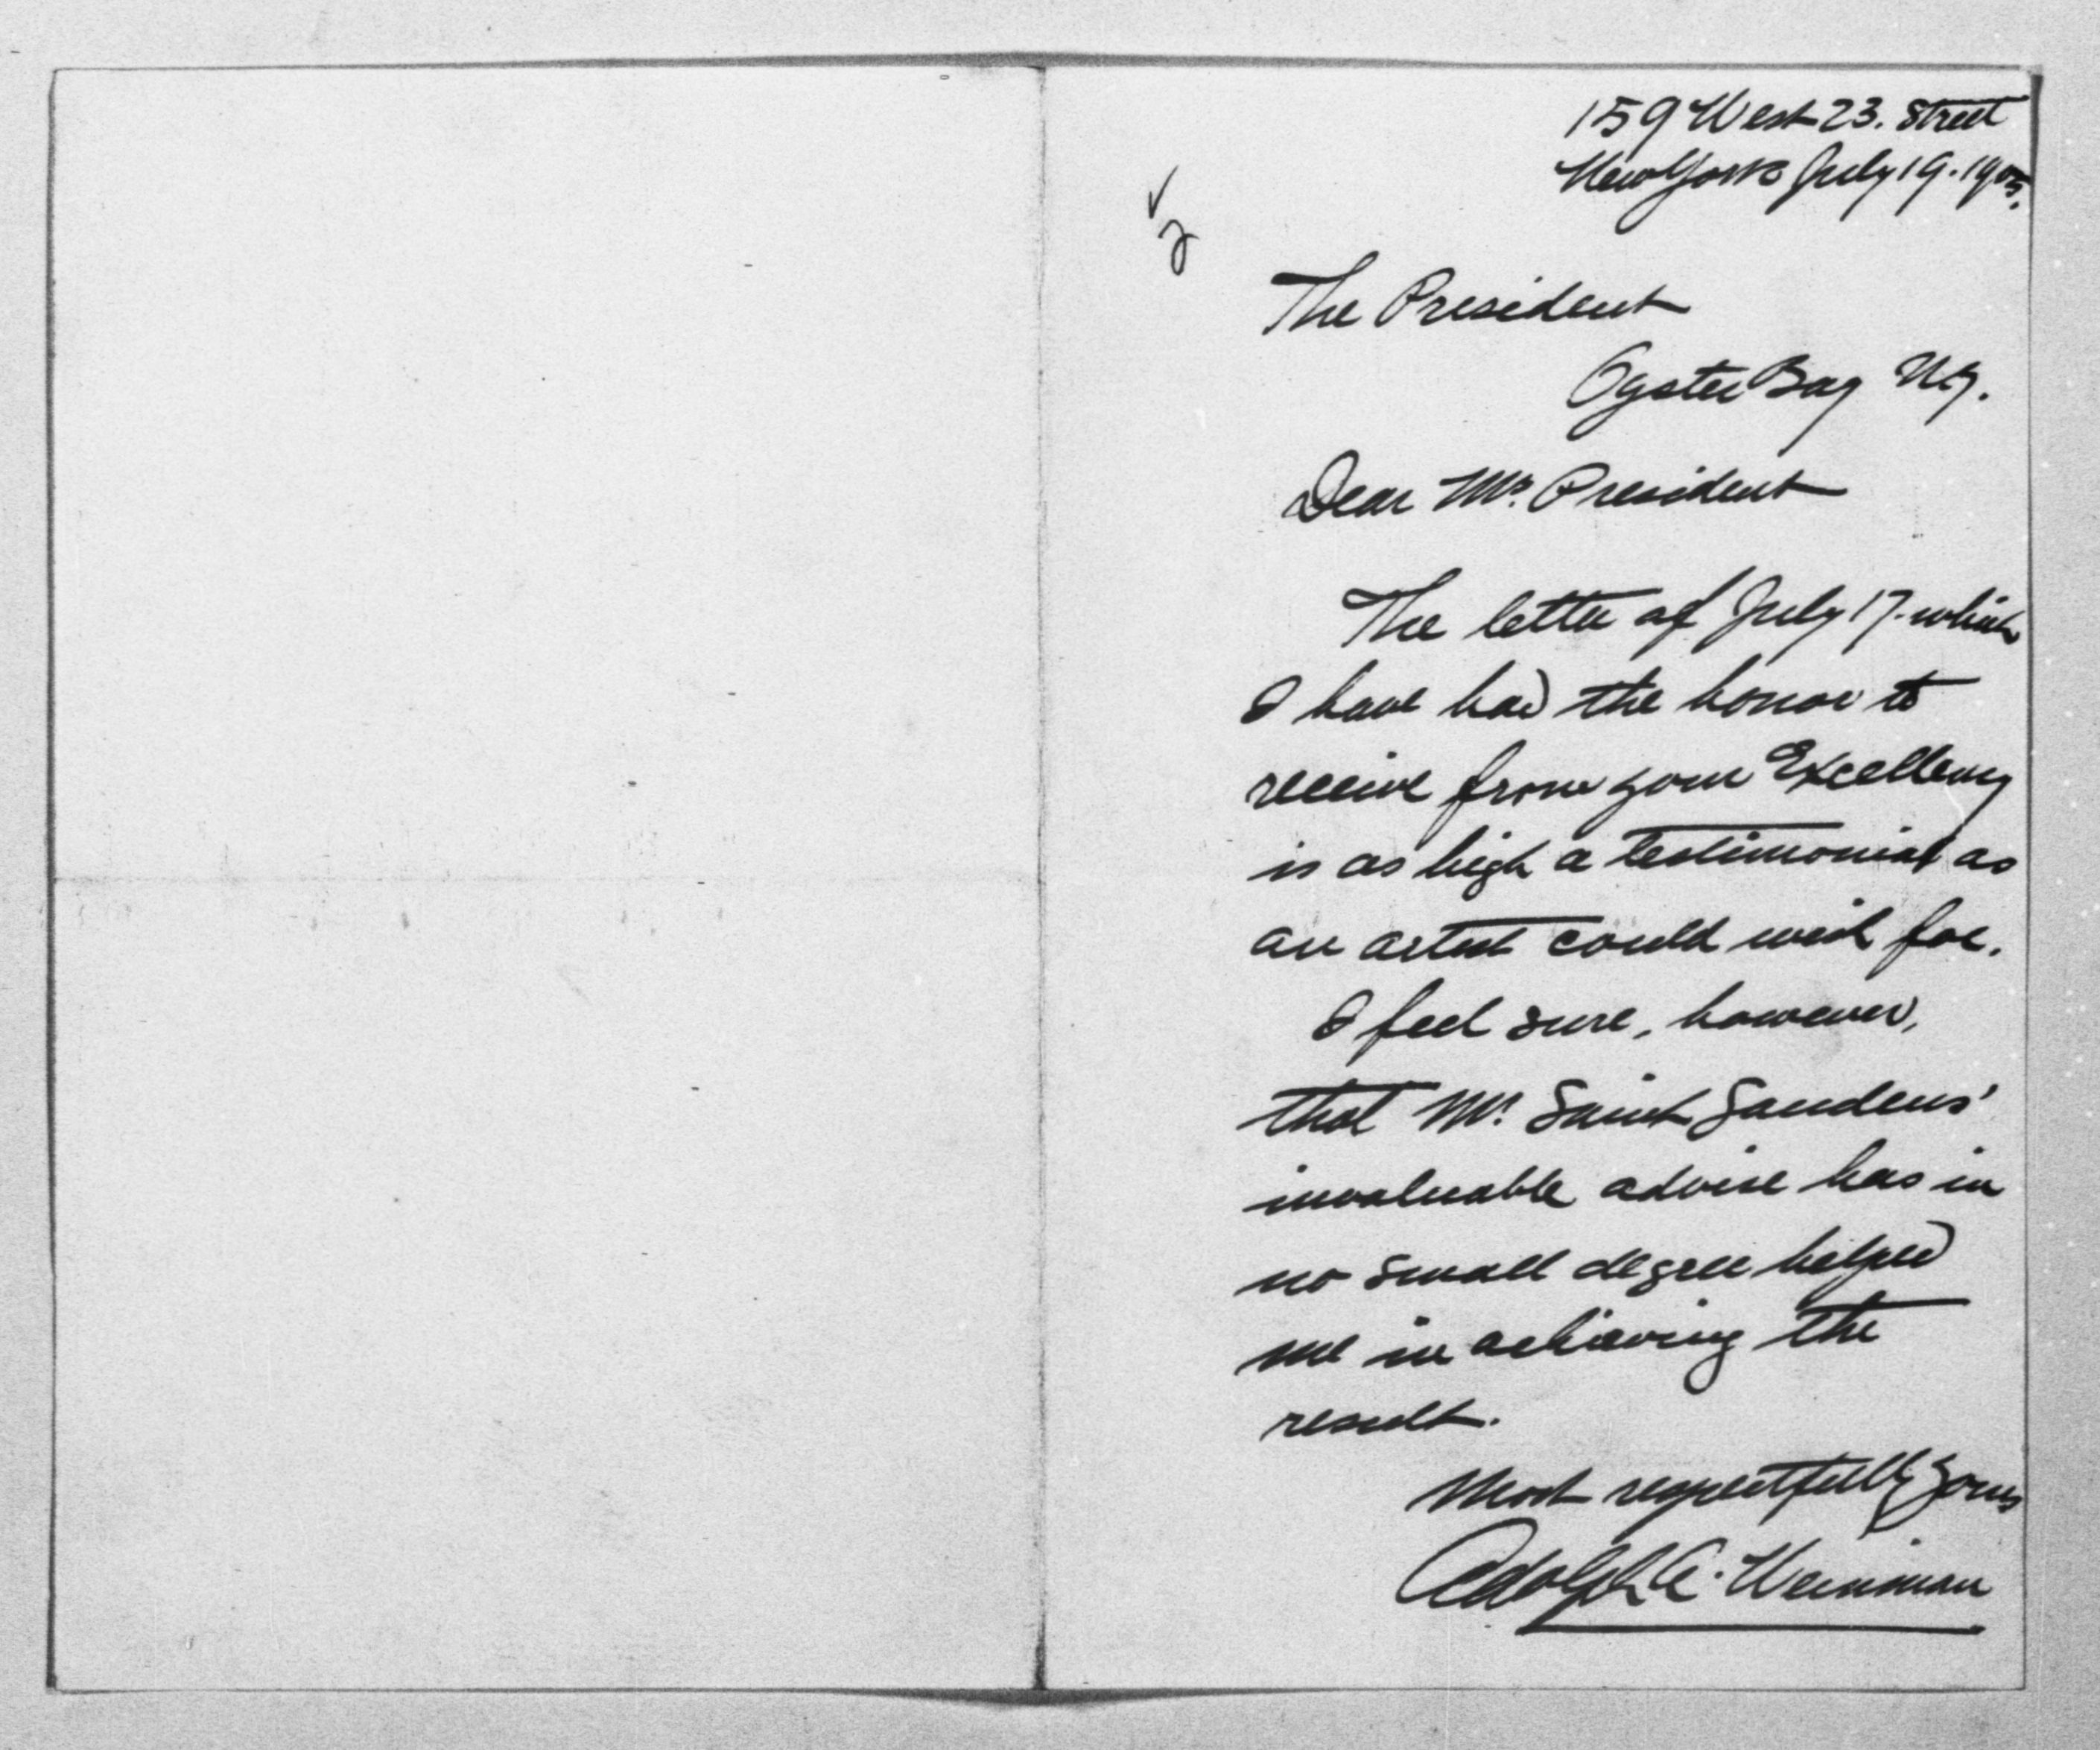 159 West 23. Street
New York July 19. 1905.
The President
Oyster Bay N.Y.
Dear Mr. President
The letter of July 17. which
I have had the honor to
receive from your Excellency
is as high a testimonial as
an artist could wish for.
I feel sure, however,
that Mr. Saint Gaudens'
invaluable advise has in
no small degree helped
me in achieving the
result.
Most respectfully yours
Adolph A. Weinman